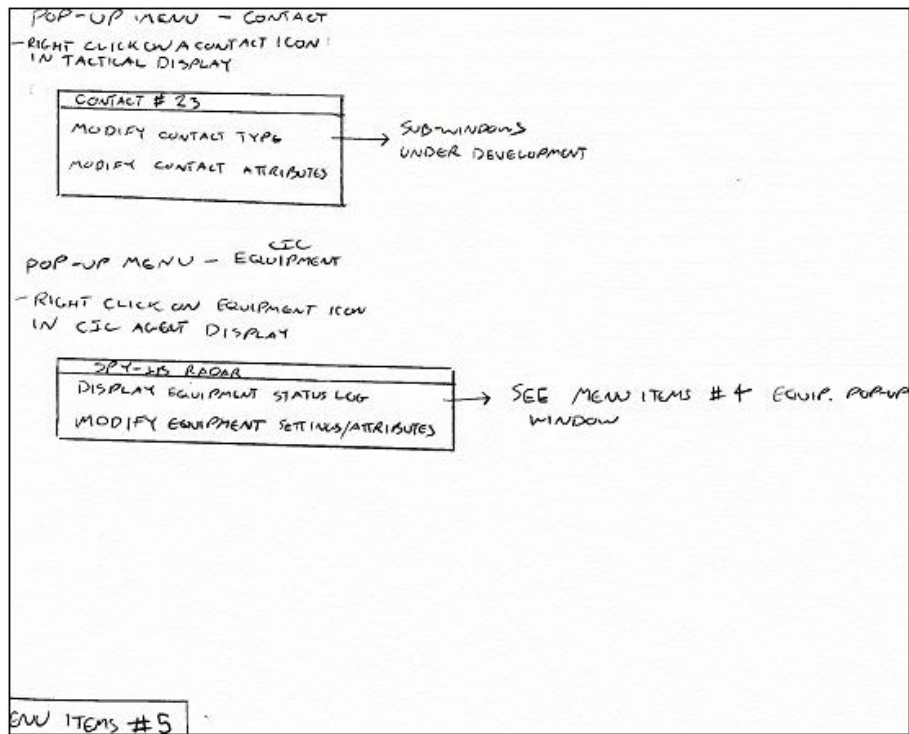 POP-UP MENU - CONTACT
- RIGHT CLICK ON A CONTACT ICON
IN TACTICAL DISPLAY
CONTACT # 23
MODIFY CONTACT TYPE
MODIFY CONTACT ATTRIBUTES
SUB-WINDOWS
UNDER DEVELOPMENT
CIC
POP-UP MENU - EQUIPMENT
- RIGHT CLICK ON EQUIPMENT ICON
IN CIC AGENT DISPLAY
SPY-1B RADAR
DISPLAY EQUIPMENT STATUS LOG
MODIFY EQUIPMENT SETTINGS/ATTRIBUTES
SEE MENU ITEMS #4 EQUIP. POP-UP
WINDOW
ENU ITEMS #5